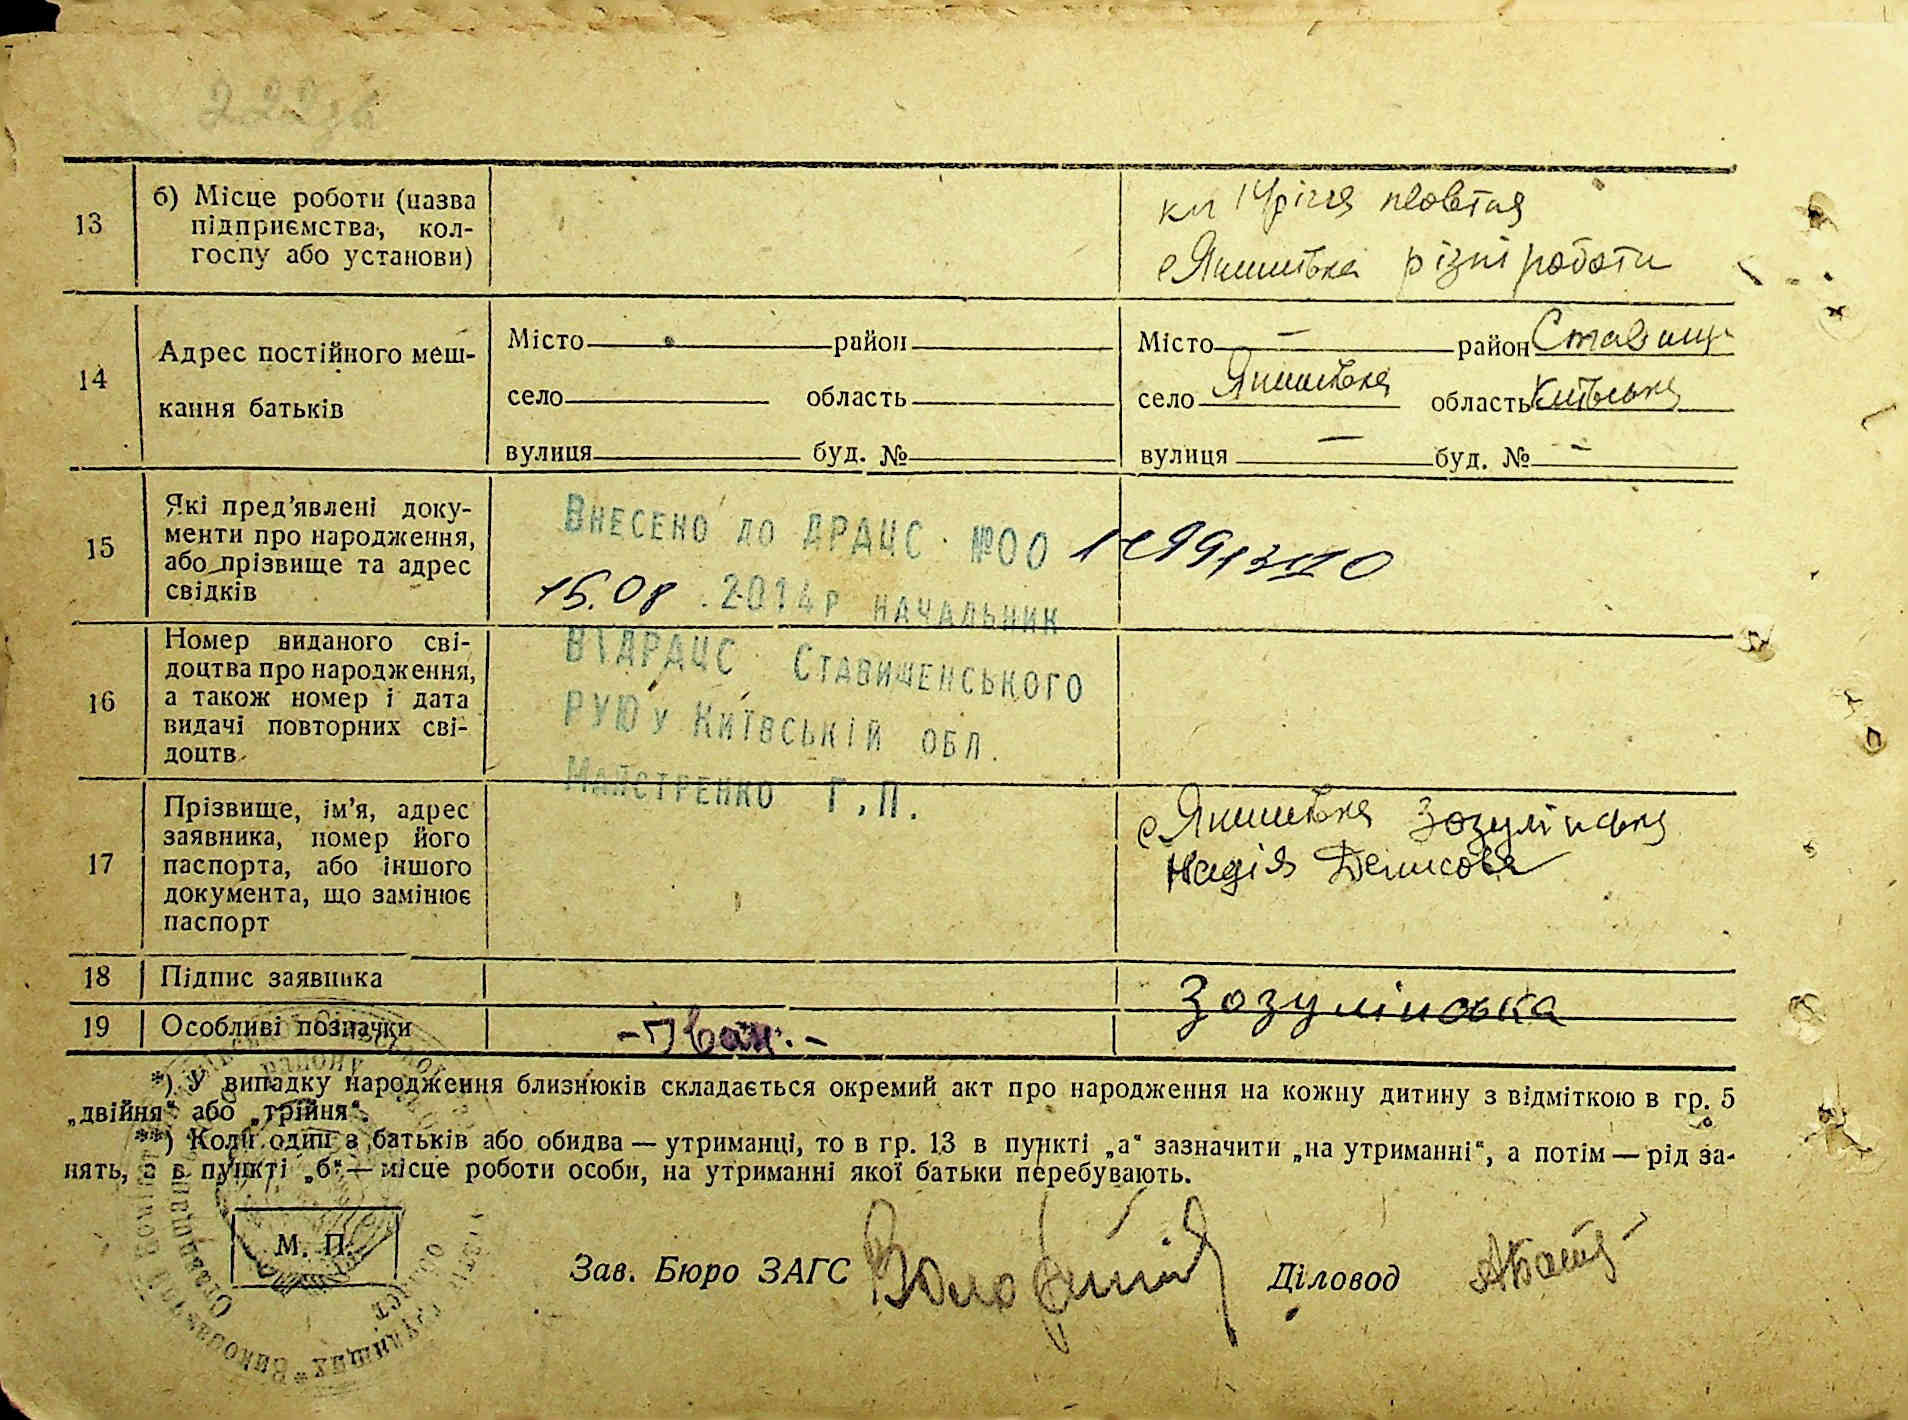 13
б) Місце роботи (назва
підприємства, кол-
госпу або установи)
річчя жовтня
с Якимівка різні роботи
14
Адрес постійного меш-
кання батьків
Місто район
село область
вулиця буд. №
Місто — район Ставищ
село Якимівка область Київська
вулиця — буд. № —
15
Які пред'явлені доку-
менти про народження,
або прізвище та адрес
свідків
Внесено до ДРАЦС №00
15.08 .2014р начальник
ВІДРАЦС Ставищенського
РУЮ у Київській обл.
Майстренко Г.П.
16
Номер виданого сві-
доцтва про народження,
а також номер і дата
видачі повторних сві-
доцтв
17
Прізвище, ім'я, адрес
заявника, номер його
паспорта, або іншого
документа, що замінює
паспорт
с Якимівка Зозулінська
Надія Денисовa
18
Підпис заявника
Зозулінська
19
Особливі позначки
- Іван. -
*) У випадку народження близнюків складається окремий акт про народження на кожну дитину з відміткою в гр. 5
„двійня" або „трійня".
**) Коли один з батьків або обидва — утриманці, то в гр. 13 в пункті „а" зазначити „на утриманні", а потім — рід за-
нять, а в пункті „б" — місце роботи особи, на утриманні якої батьки перебувають.
М. П.
Зав. Бюро ЗАГС
Діловод